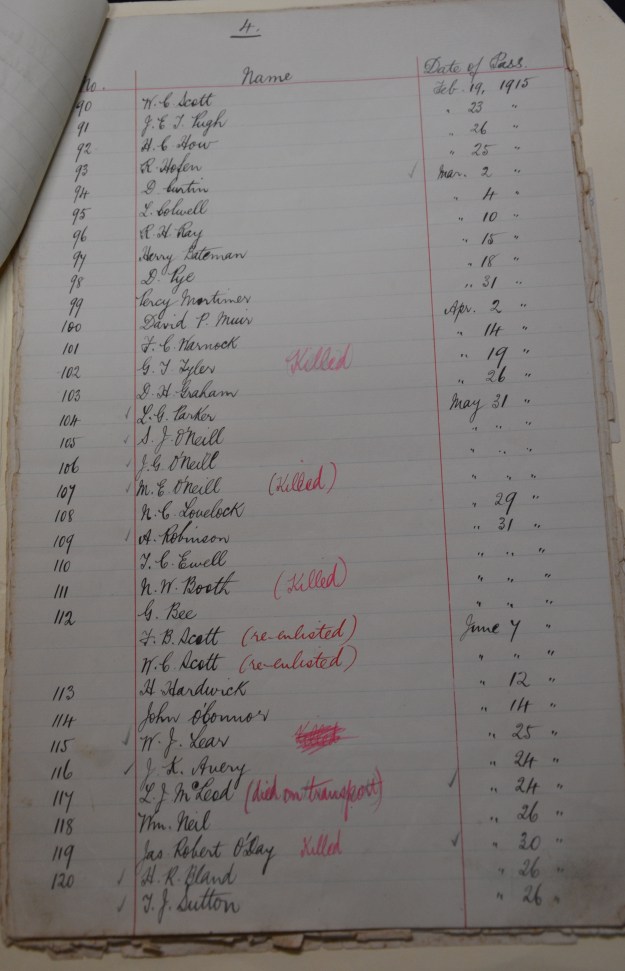 4.
No. Name Date of Pass
90 W. C. Scott Feb. 19, 1915
91 J. E. T. Pugh " 23 "
92 H. C. How " 26 "
93 R. Hofen " 25 "
94 D. Curtin Mar. 2 "
95 L. Colwell " 4 "
96 R. H. Ray " 10 "
97 Harry Bateman " 15 "
98 D. Pye " 18 "
99 Percy Mortimer " 31 "
100 David P. Muir Apr. 2 "
101 F. C. Warnock " 14 "
102 G. T. Tyler Killed " 19 "
103 D. H. Graham " 26 "
104 L. G. Parker May 31 "
105 S. J. O'Neill " " "
106 J. G. O'Neill " " "
107 M. E. O'Neill (Killed) " " "
108 N. C. Lovelock " 29 "
109 A. Robinson " 31 "
110 T. C. Ewell " " "
111 N. W. Booth (Killed) " " "
112 G. Bee " " "
F. B. Scott (re-enlisted) June 7 "
W. C. Scott (re-enlisted) " " "
113 H Hardwick " 12 "
114 John O'Connor " 14 "
115 W. J. Lear " 25 "
116 J. K. Avery " 24 "
117 L. J. McLeod (died on transport) " 24 "
118 Wm. Neil " 26 "
119 Jas Robert O'Day Killed " 30 "
120 H. R. Bland " 26 "
T. J. Sutton " 26 "